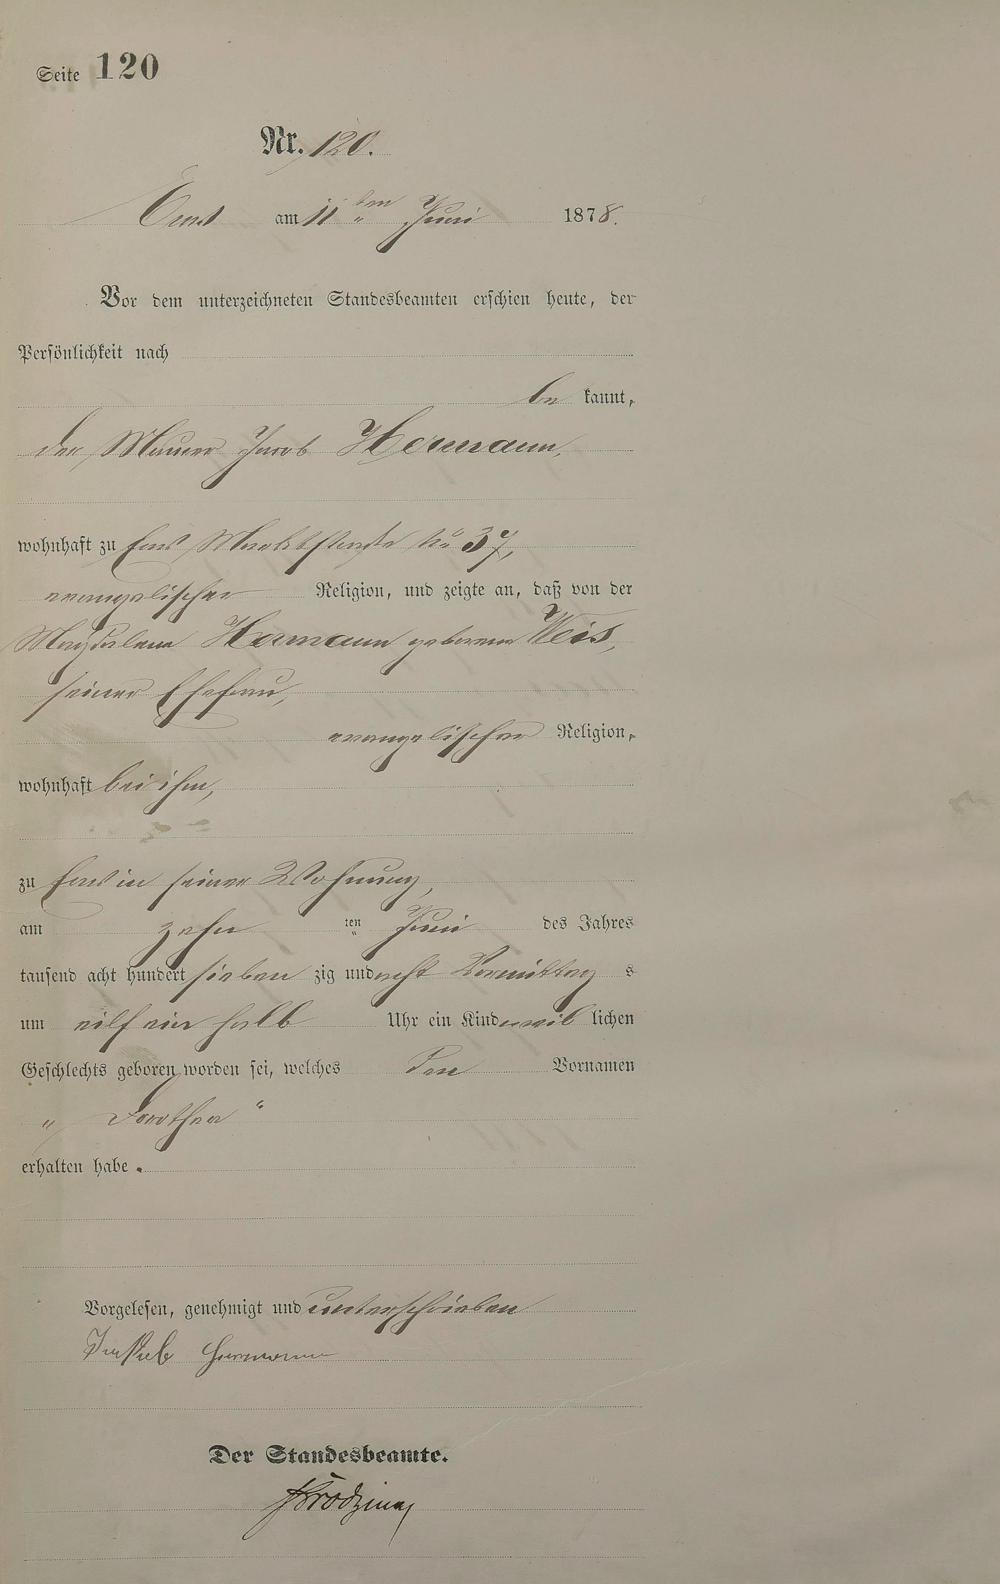 Seite 120
Nr. 120.
Ems am 11ten Juni 1878.
Vor dem unterzeichneten Standesbeamten erschien heute, der
Persönlichkeit nach
be kannt,
der Maurer Jacob Hermann,
wohnhaft zu Ems Marktstraße No 37,
evangelischer Religion, und zeigte an, daß von der
Magdalena Hermann geborene Weis,
seiner Ehefrau,
evangelischer Religion,
wohnhaft bei ihm,
zu Ems in seiner Wohnung,
am zehn ten Juni des Jahres
tausend acht hundert sieben zig und acht Vormittag s
um eilf ein halb Uhr ein Kind weib lichen
Geschlechts geboren worden sei, welches den Vornamen
„ Dorothea “
erhalten habe.
Vorgelesen, genehmigt und unterschrieben
Jakob Hermann
Der Standesbeamte.